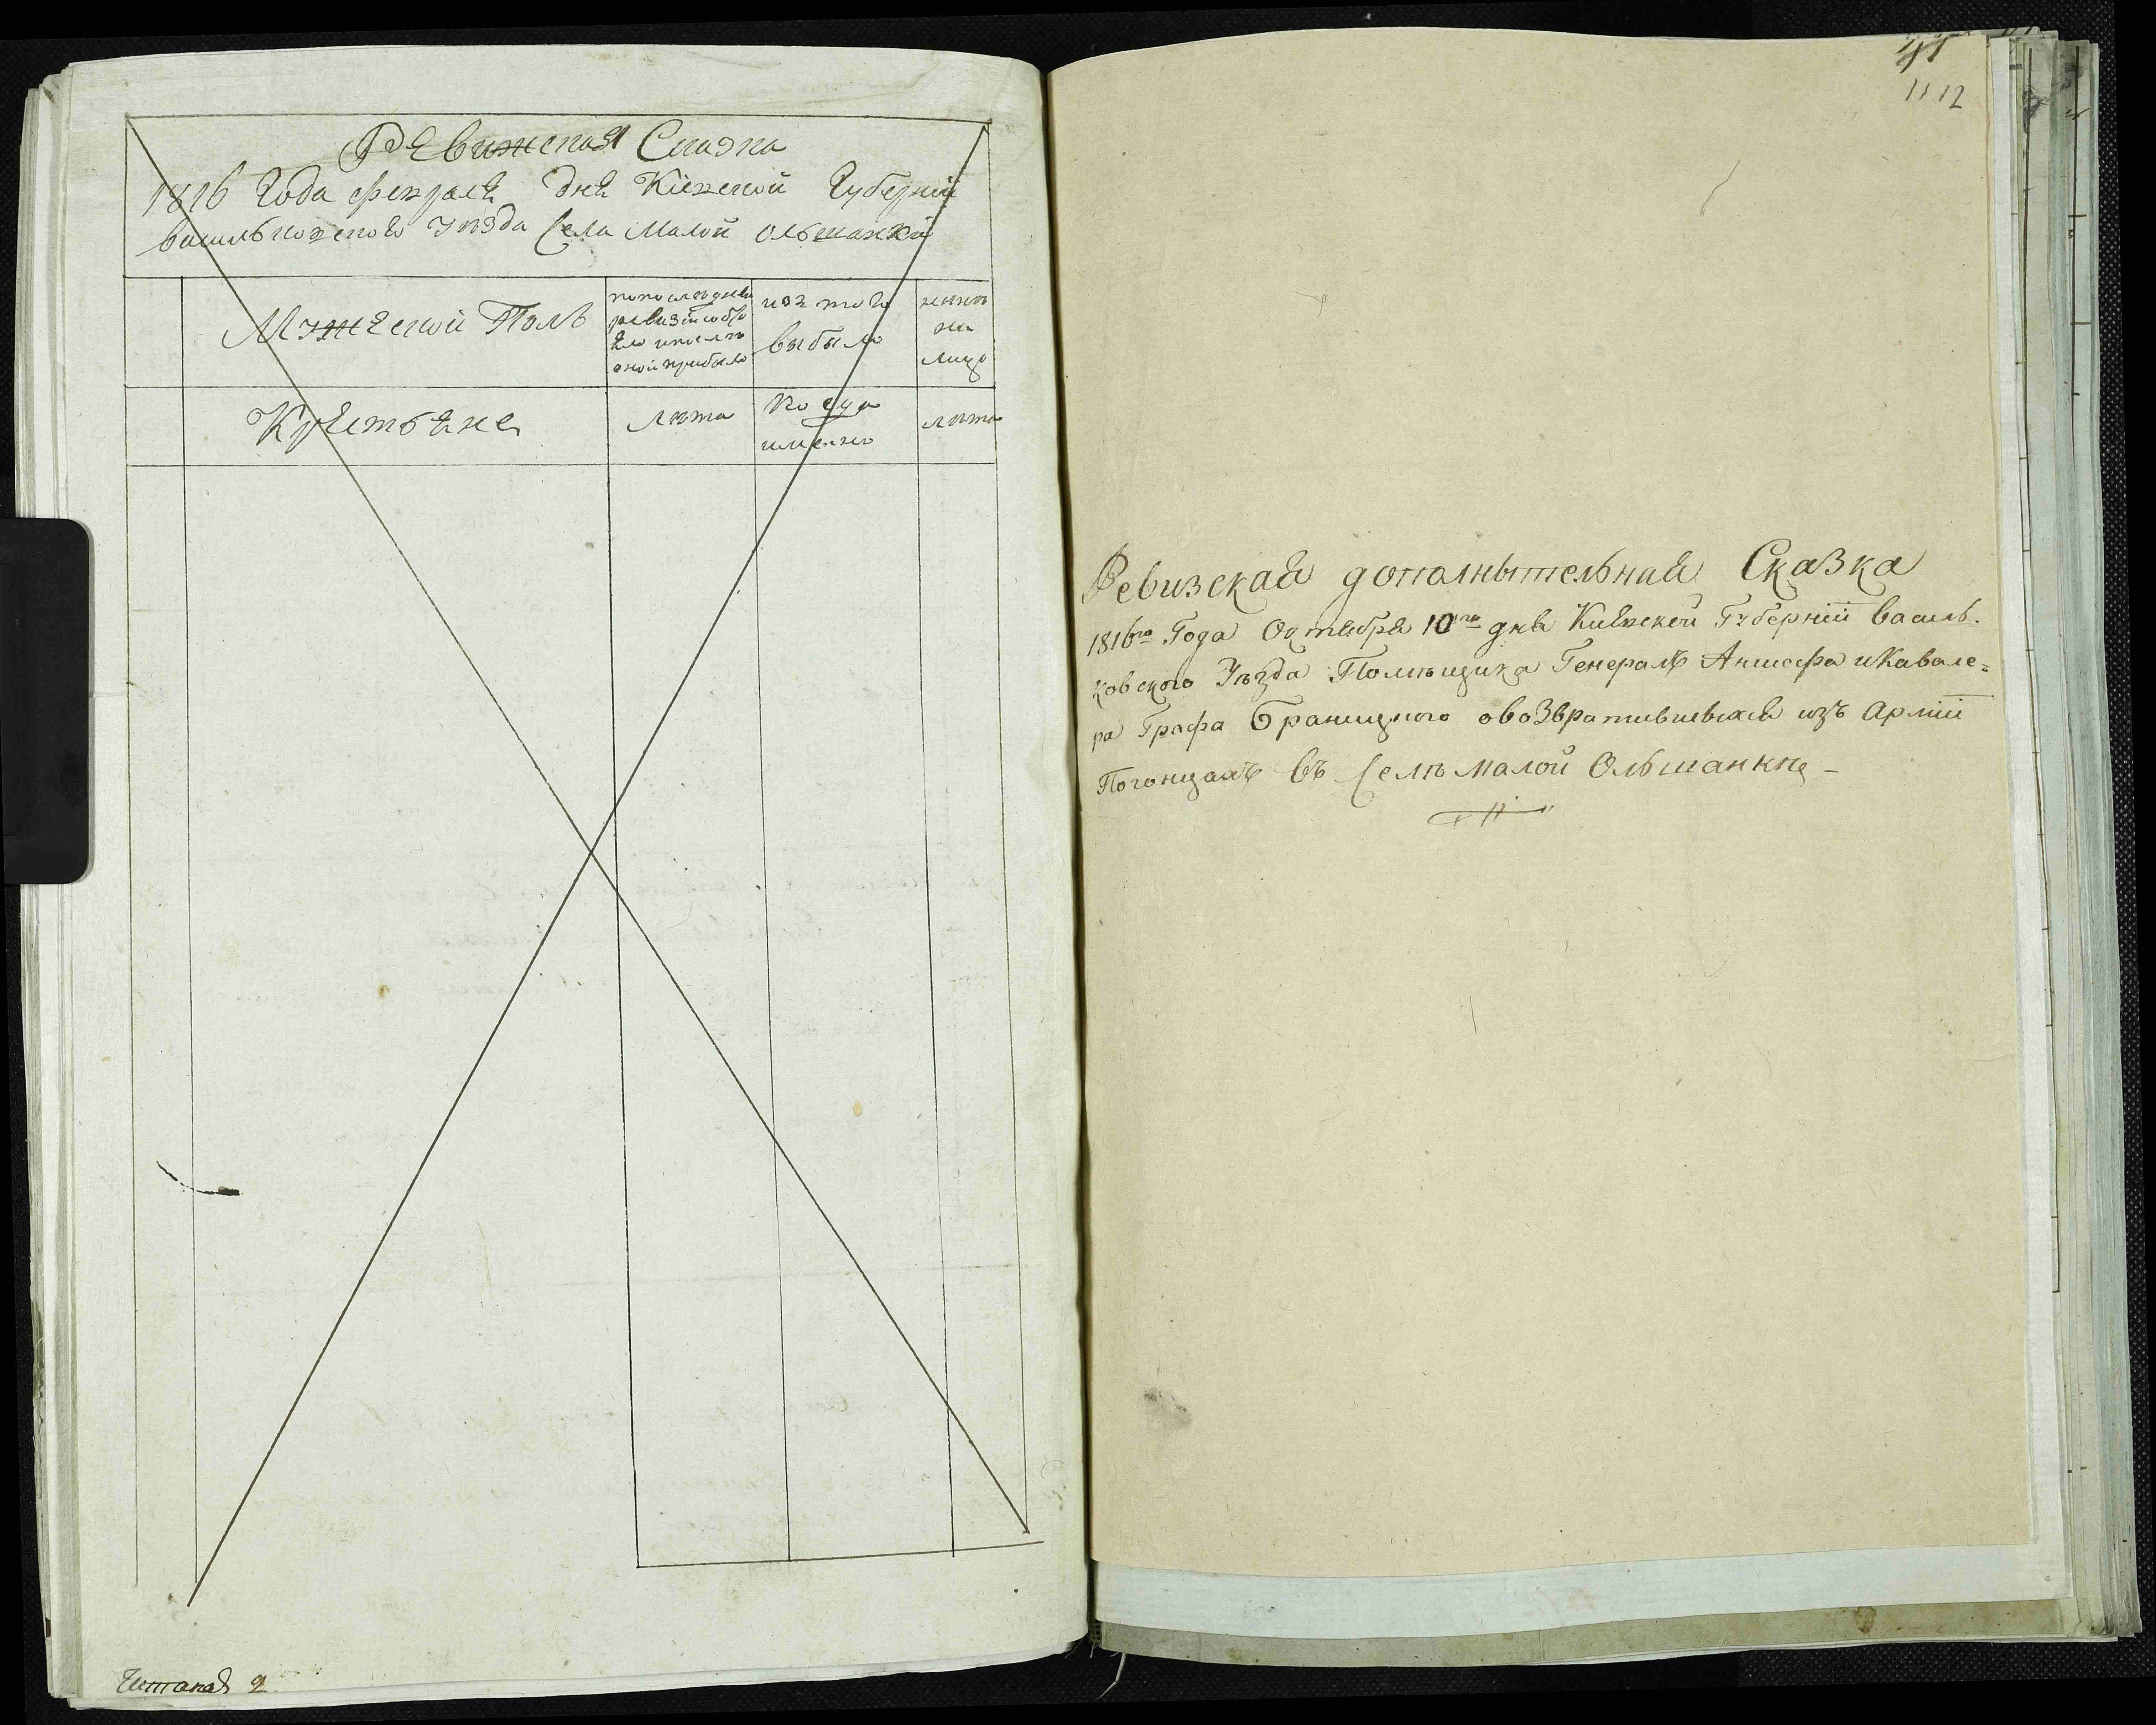 Ревижская Сказка
1816 Года февраля дня Кіевской Губерніи
васильковского уезда Села Малой Ольшанки
Мужеской Полъ
по последней
ревизіи со
ило и после
оной прибыло
изъ того
выбыло
ныне
на
лицо
Крестьяне
лета
когда
именно
лета
Читалъ
41
1112
Ревизская дополнытельная Сказка
1816го Года Октября 10го дня Киевской Губерніи василь.
ковского Уѣзда Помѣщика Генералъ Аншефа и Кавале=
ра Графа Браницкого о возвратившыхся изъ Арміи
Погонцахъ въ Селѣ малой Ольшанкѣ –